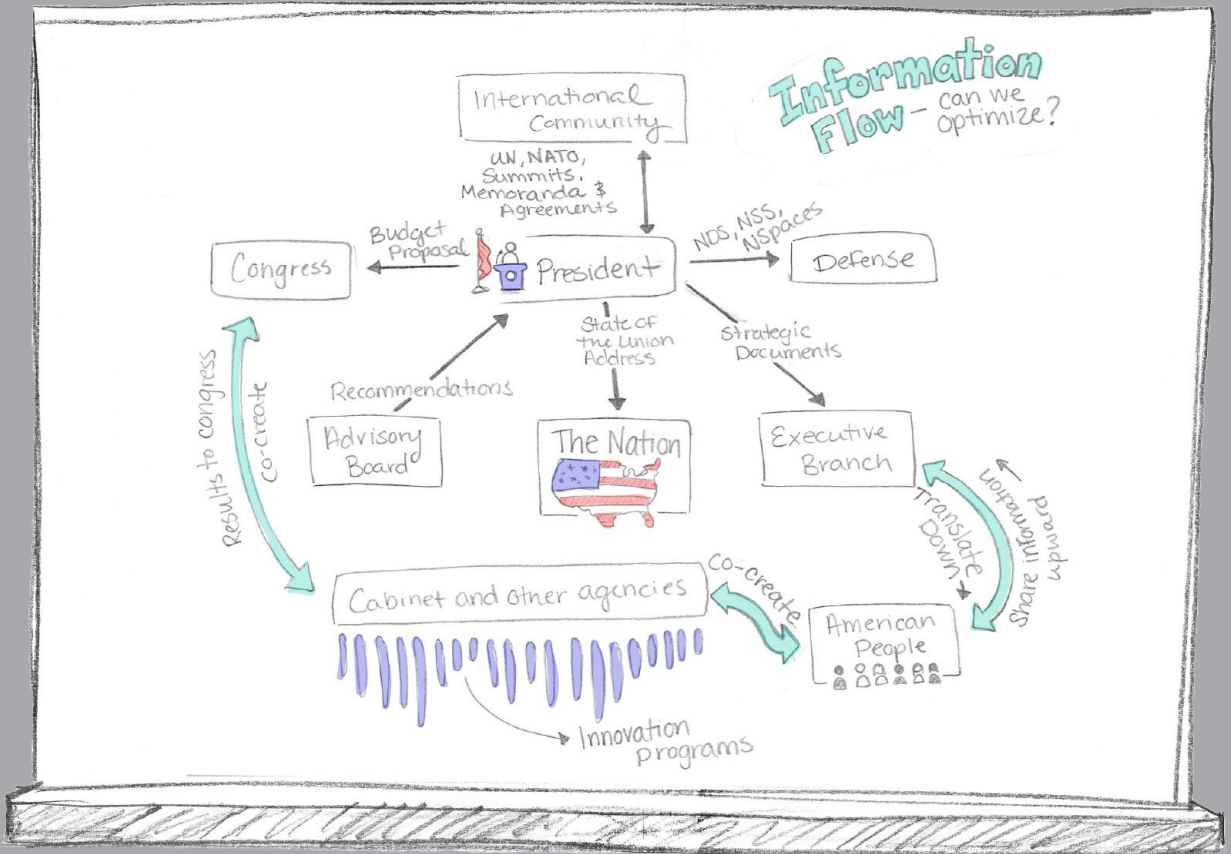 Information
Flow - can we
optimize?
International
Community
UN, NATO,
Summits,
Memoranda &
Agreements
Budget
Proposal
NDS, NSS,
NSpaces
Congress
President
Defense
State of
the Union
Address
Strategic
Documents
Recommendations
Advisory
Board
The Nation
Executive
Branch
Results to congress
co-create
Translate
Down
Share information
upward
Cabinet and other agencies
Co-create
American
People
Innovation
programs